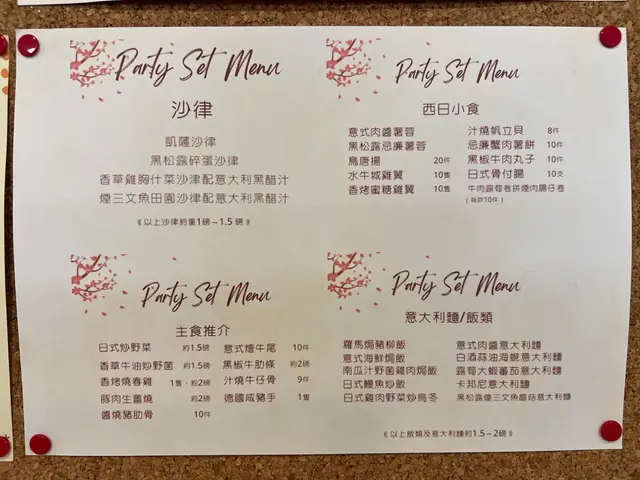 Party Set Menu
沙律
凱薩沙律
黑松露碎蛋沙律
香草雞胸什菜沙律配意大利黑醋汁
煙三文魚田園沙律配意大利黑醋汁
《以上沙律約重1磅~1.5 磅》
Party Set Menu
西日小食
意式肉醬薯蓉
黑松露忌廉薯蓉
鳥唐揚 20件
水牛城雞翼 10隻
香烤蜜糖雞翼 10隻
汁燒帆立貝 8件
忌廉蟹肉薯餅 10件
黑椒牛肉丸子 10件
日式骨付腸 10支
牛肉露荀卷拼煙肉腸仔卷
(每款10件)
Party Set Menu
主食推介
日式炒野菜 約1.5磅
香草牛油炒野菌 約1.5磅
香烤燒春雞 1隻，約2磅
豚肉生薑燒 約2磅
醬燒豬肋骨 10件
意式燴牛尾 10件
黑椒牛肋條 約2磅
汁燒牛仔骨 9件
德國咸豬手 1隻
Party Set Menu
意大利麵/飯類
羅馬焗豬柳飯
意式海鮮焗飯
南瓜汁野菌雞肉焗飯
日式鰻魚炒飯
日式雞肉野菜炒烏冬
意式肉醬意大利麵
白酒蒜油海蜆意大利麵
露荀大蝦蕃茄意大利麵
卡邦尼意大利麵
黑松露煙三文魚蘑菇意大利麵
《以上飯類及意大利麵約1.5~2磅》